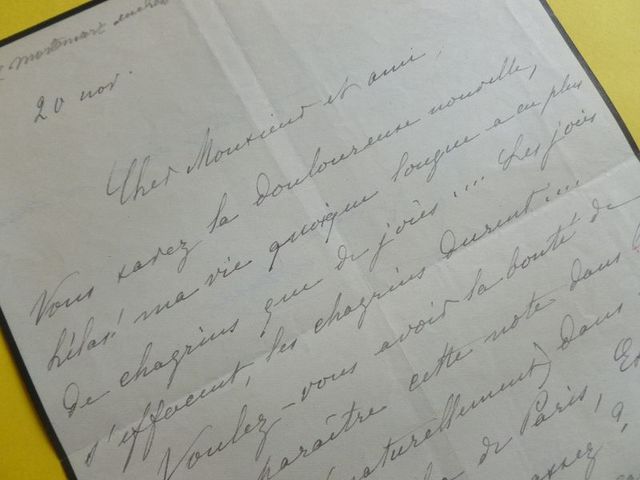 20 nov.
Cher Monsieur et ami,
Vous savez la douloureuse nouvelle,
hélas! ma vie quoique longue a eu plus
de chagrins que de joies... Les joies
s'effacent, les chagrins durent!...
Voulez-vous avoir la bonté de
paraître cette note dans
naturellement) dans
de Paris,